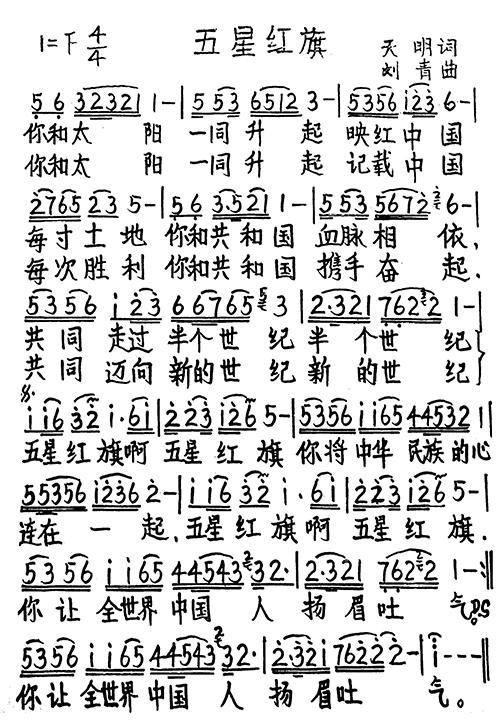 1=下 4/4 五星红旗 天明词
刘青曲
5 6 32321 1-|5 53 6512 3-|5356 i23 6-|
你和太 阳 一同升 起 映红中国
你和太 阳 一同升 起 记载中国
2765 23 5-|56 3·521 1-|5 53 5672 6-|
每寸土地 你和共和国 血脉相 依,
每次胜利 你和共和国 携手奋 起,
5356 i 23 66765 3|2·321 7622 1-|
共同 走过 半个世 纪 半 个世 纪
共同 迈向 新的世 纪 新 的世 纪
ii6 32 i·6i|223 i26 5-|5356 ii65 445321|
五星红旗啊 五星红旗 你将中华 民族的心
55356 i236 2-|ii6 32 i·6i|223 i26 5-|
连在 一 起,五星红旗啊 五星红旗.
5356 ii65 44543 32·|2·321 7622 1-:|
你让 全世界 中国 人 扬眉吐 气。D.S
5356 ii65 44543 32·|2·32i 76222-|i---||
你让 全世界 中国 人 扬眉吐 气。